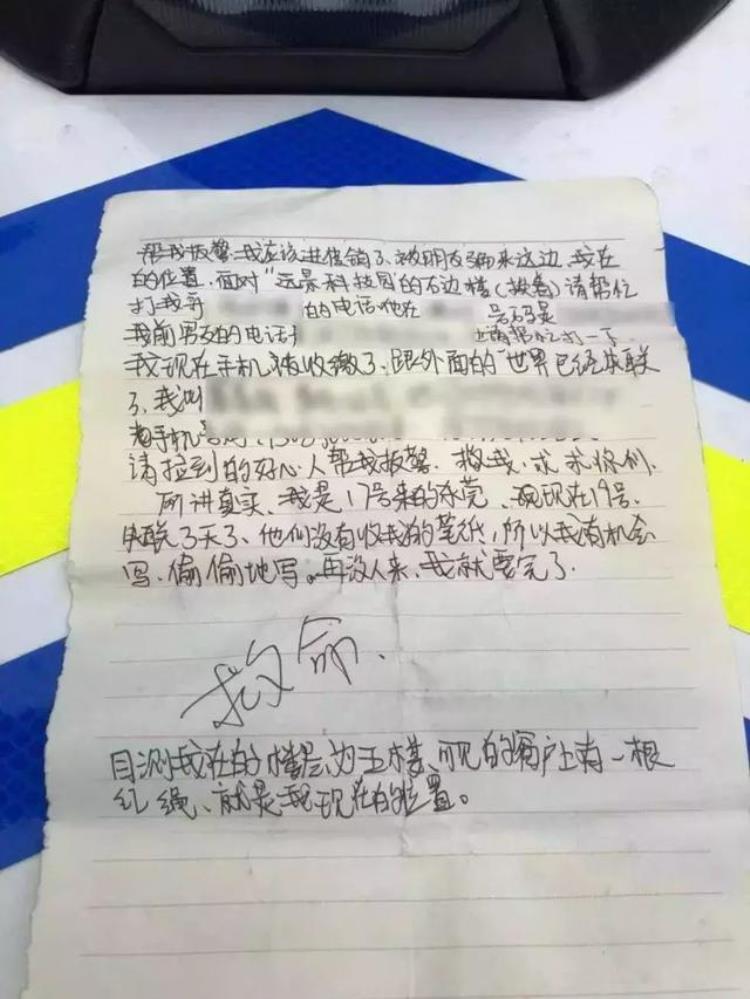 帮我报警.我应该进传销了、被朋友骗来这边、我在
的位置.面对“远景科技园”的右边楼(报警)请帮忙
打我哥 的电话.他在 号码是
我前男友的电话 请帮忙打一下
我现在手机被收缴了、跟外面的世界已经失联
了、我叫
手机号
请捡到的好心人帮我报警、救我、求求你们.
所讲真实、我是17号来的东莞、现在19号、
失联3天了、他们没有收我的笔纸,所以我有机会
写、偷偷地写。再没人来、我就要完了.
救命.
目测我在的楼层为五楼、可见的窗户上有一根
红绳、就是我现在的位置。